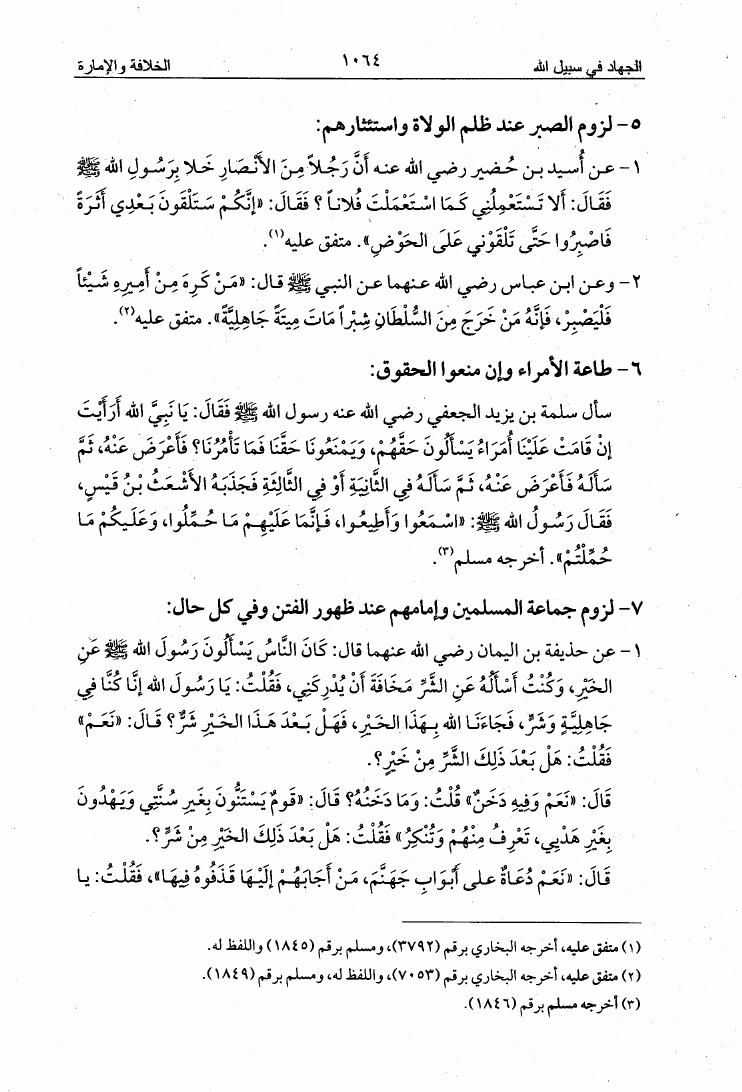 الجهاد في سبيل الله ١٠٦٤ الخلافة والإمارة
٥- لزوم الصبر عند ظلم الولاة واستئثارهم:
١- عن أُسيد بن حُضير رضي الله عنه أنَّ رَجُلاً مِنَ الأَنْصَارِ خَلا بِرَسُولِ الله ﷺ
فَقَالَ: أَلا تَسْتَعْمِلُنِي كَمَا اسْتَعْمَلْتَ فُلاناً؟ فَقَالَ: «إنَّكُمْ سَتَلْقَونَ بَعْدِي أَثَرَةً
فَاصْبِرُوا حَتَّى تَلْقَوْنِي عَلَى الحَوْضِ». متفق عليه(١).
٢- وعن ابن عباس رضي الله عنهما عن النبي ﷺ قال: «مَنْ كَرِهَ مِنْ أَمِيرِهِ شَيْئاً
فَلْيَصْبِرْ، فَإنَّهُ مَنْ خَرَجَ مِنَ السُّلْطَانِ شِبْراً مَاتَ مِيتَةً جَاهِلِيَّةً». متفق عليه(٢).
٦- طاعة الأمراء وإن منعوا الحقوق:
سأل سلمة بن يزيد الجعفي رضي الله عنه رسول الله ﷺ فَقَالَ: يَا نَبِيَّ الله أَرَأَيْتَ
إنْ قَامَتْ عَلَيْنَا أُمَرَاءُ يَسْأَلُونَ حَقَّهُمْ، وَيَمْنَعُونَا حَقَّنَا فَمَا تَأْمُرُنَا؟ فَأَعْرَضَ عَنْهُ، ثمَّ
سَأَلَهُ فَأَعْرَضَ عَنْهُ، ثمَّ سَأَلَهُ فِي الثَّانِيَةِ أَوْ فِي الثَّالِثَةِ فَجَذَبَهُ الأَشْعَثُ بْنُ قَيْسٍ،
فَقَالَ رَسُولُ الله ﷺ: «اسْمَعُوا وَأَطِيعُوا، فَإنَّمَا عَلَيْهِمْ مَا حُمِّلُوا، وَعَلَيكُمْ مَا
حُمِّلْتُمْ». أخرجه مسلم(٣).
٧- لزوم جماعة المسلمين وإمامهم عند ظهور الفتن وفي كل حال:
١- عن حذيفة بن اليمان رضي الله عنهما قال: كَانَ النَّاسُ يَسْأَلُونَ رَسُولَ الله ﷺ عَنِ
الخَيْرِ، وَكُنْتُ أَسْأَلُهُ عَنِ الشَّرِّ مَخَافَةَ أَنْ يُدْرِكَنِي، فَقُلْتُ: يَا رَسُولَ الله إنَّا كُنَّا فِي
جَاهِلِيَّةٍ وَشَرٍّ، فَجَاءَنَا الله بِهَذَا الخَيْرِ، فَهَلْ بَعْدَ هَذَا الخَيْرِ شَرٌّ؟ قَالَ: «نَعَمْ»
فَقُلْتُ: هَلْ بَعْدَ ذَلِكَ الشَّرِّ مِنْ خَيْرٍ؟.
قَالَ: «نَعَمْ وَفِيهِ دَخَنٌ» قُلْتُ: وَمَا دَخَنُهُ؟ قَالَ: «قَومٌ يَسْتَنُّونَ بِغَيرِ سُنَّتِي وَيَهْدُونَ
بِغَيْرِ هَدْيِي، تَعْرِفُ مِنْهُمْ وَتُنْكِرُ» فَقُلْتُ: هَلْ بَعْدَ ذَلِكَ الخَيْرِ مِنْ شَرٍّ؟.
قَالَ: «نَعَمْ دُعَاةٌ على أَبْوَابِ جَهَنَّمَ، مَنْ أَجَابَهُمْ إلَيْهَا قَذَفُوهُ فِيهَا»، فَقُلْتُ: يا
(١) متفق عليه، أخرجه البخاري برقم (٣٧٩٢)، ومسلم برقم (١٨٤٥) واللفظ له.
(٢) متفق عليه، أخرجه البخاري برقم (٧٠٥٣)، واللفظ له، ومسلم برقم (١٨٤٩).
(٣) أخرجه مسلم برقم (١٨٤٦).